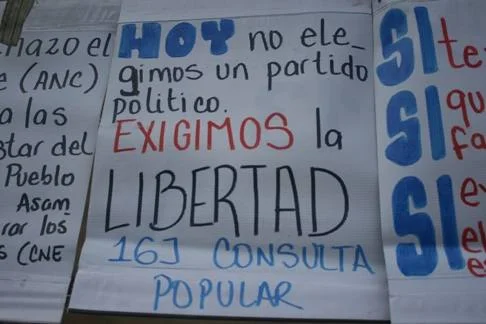 HOY no ele_
gimos un partido
político.
EXIGIMOS la
LIBERTAD
16J CONSULTA
POPULAR
hazo el
(ANC)
a las
del
Pueblo
Asam
los
(CNE
SI te
SI qu
fa
SI
el